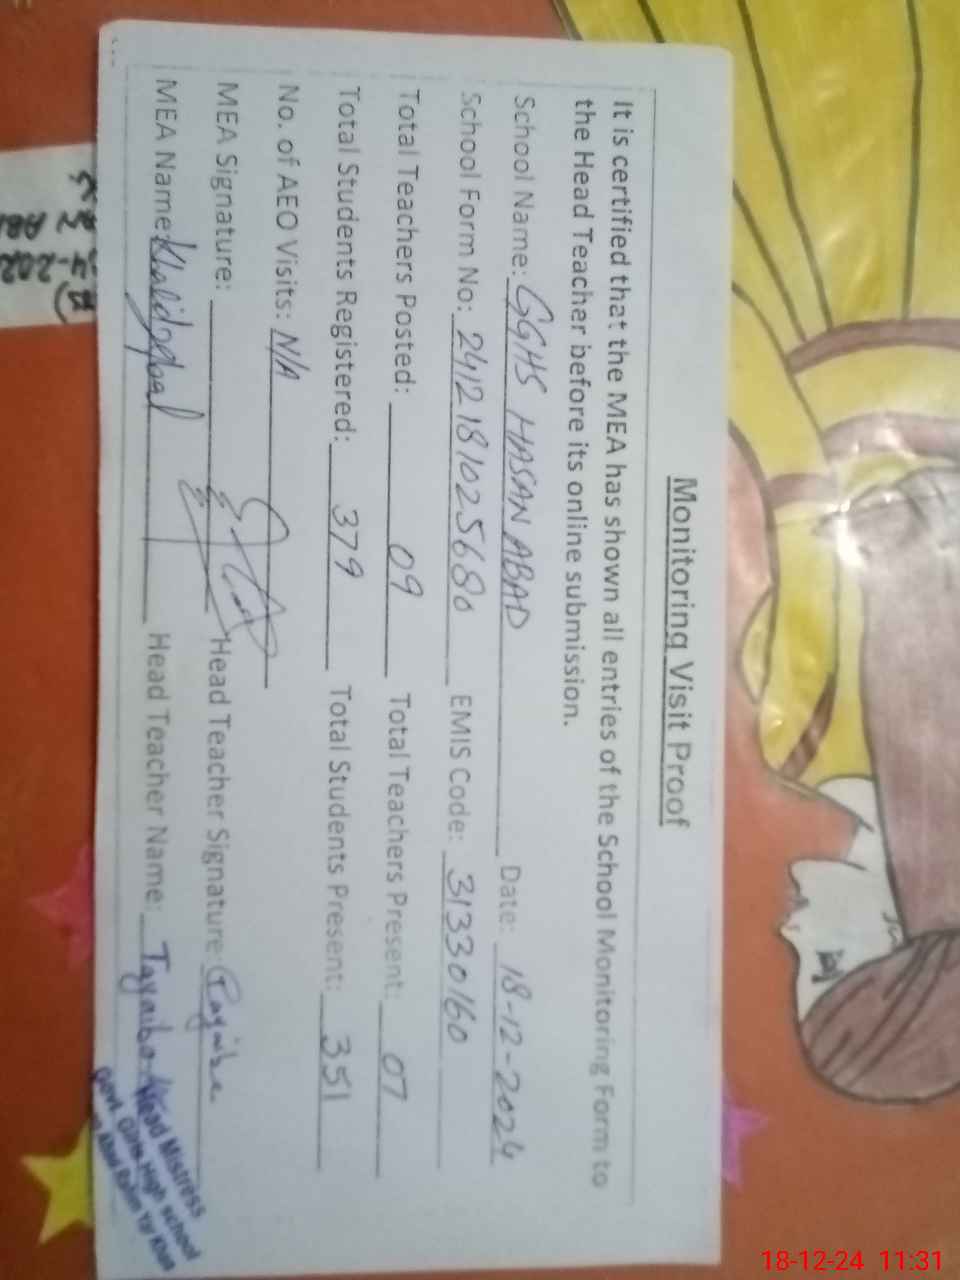 Monitoring Visit Proof
It is certified that the MEA has shown all entries of the School Monitoring Form to
the Head Teacher before its online submission.
School Name: GGHS HASAN ABAD Date: 18-12-2024
School Form No: 2412181025680 EMIS Code: 31330160
Total Teachers Posted: 09 Total Teachers Present: 07
Total Students Registered: 379 Total Students Present: 351
No. of AEO Visits: N/A
MEA Signature: Head Teacher Signature: Tayaiba
MEA Name: Khalid Iqbal Head Teacher Name: Tayaiba
Head Mistress
Govt. Girls High School
Abad Rahim Yar Khan
18-12-24 11:31